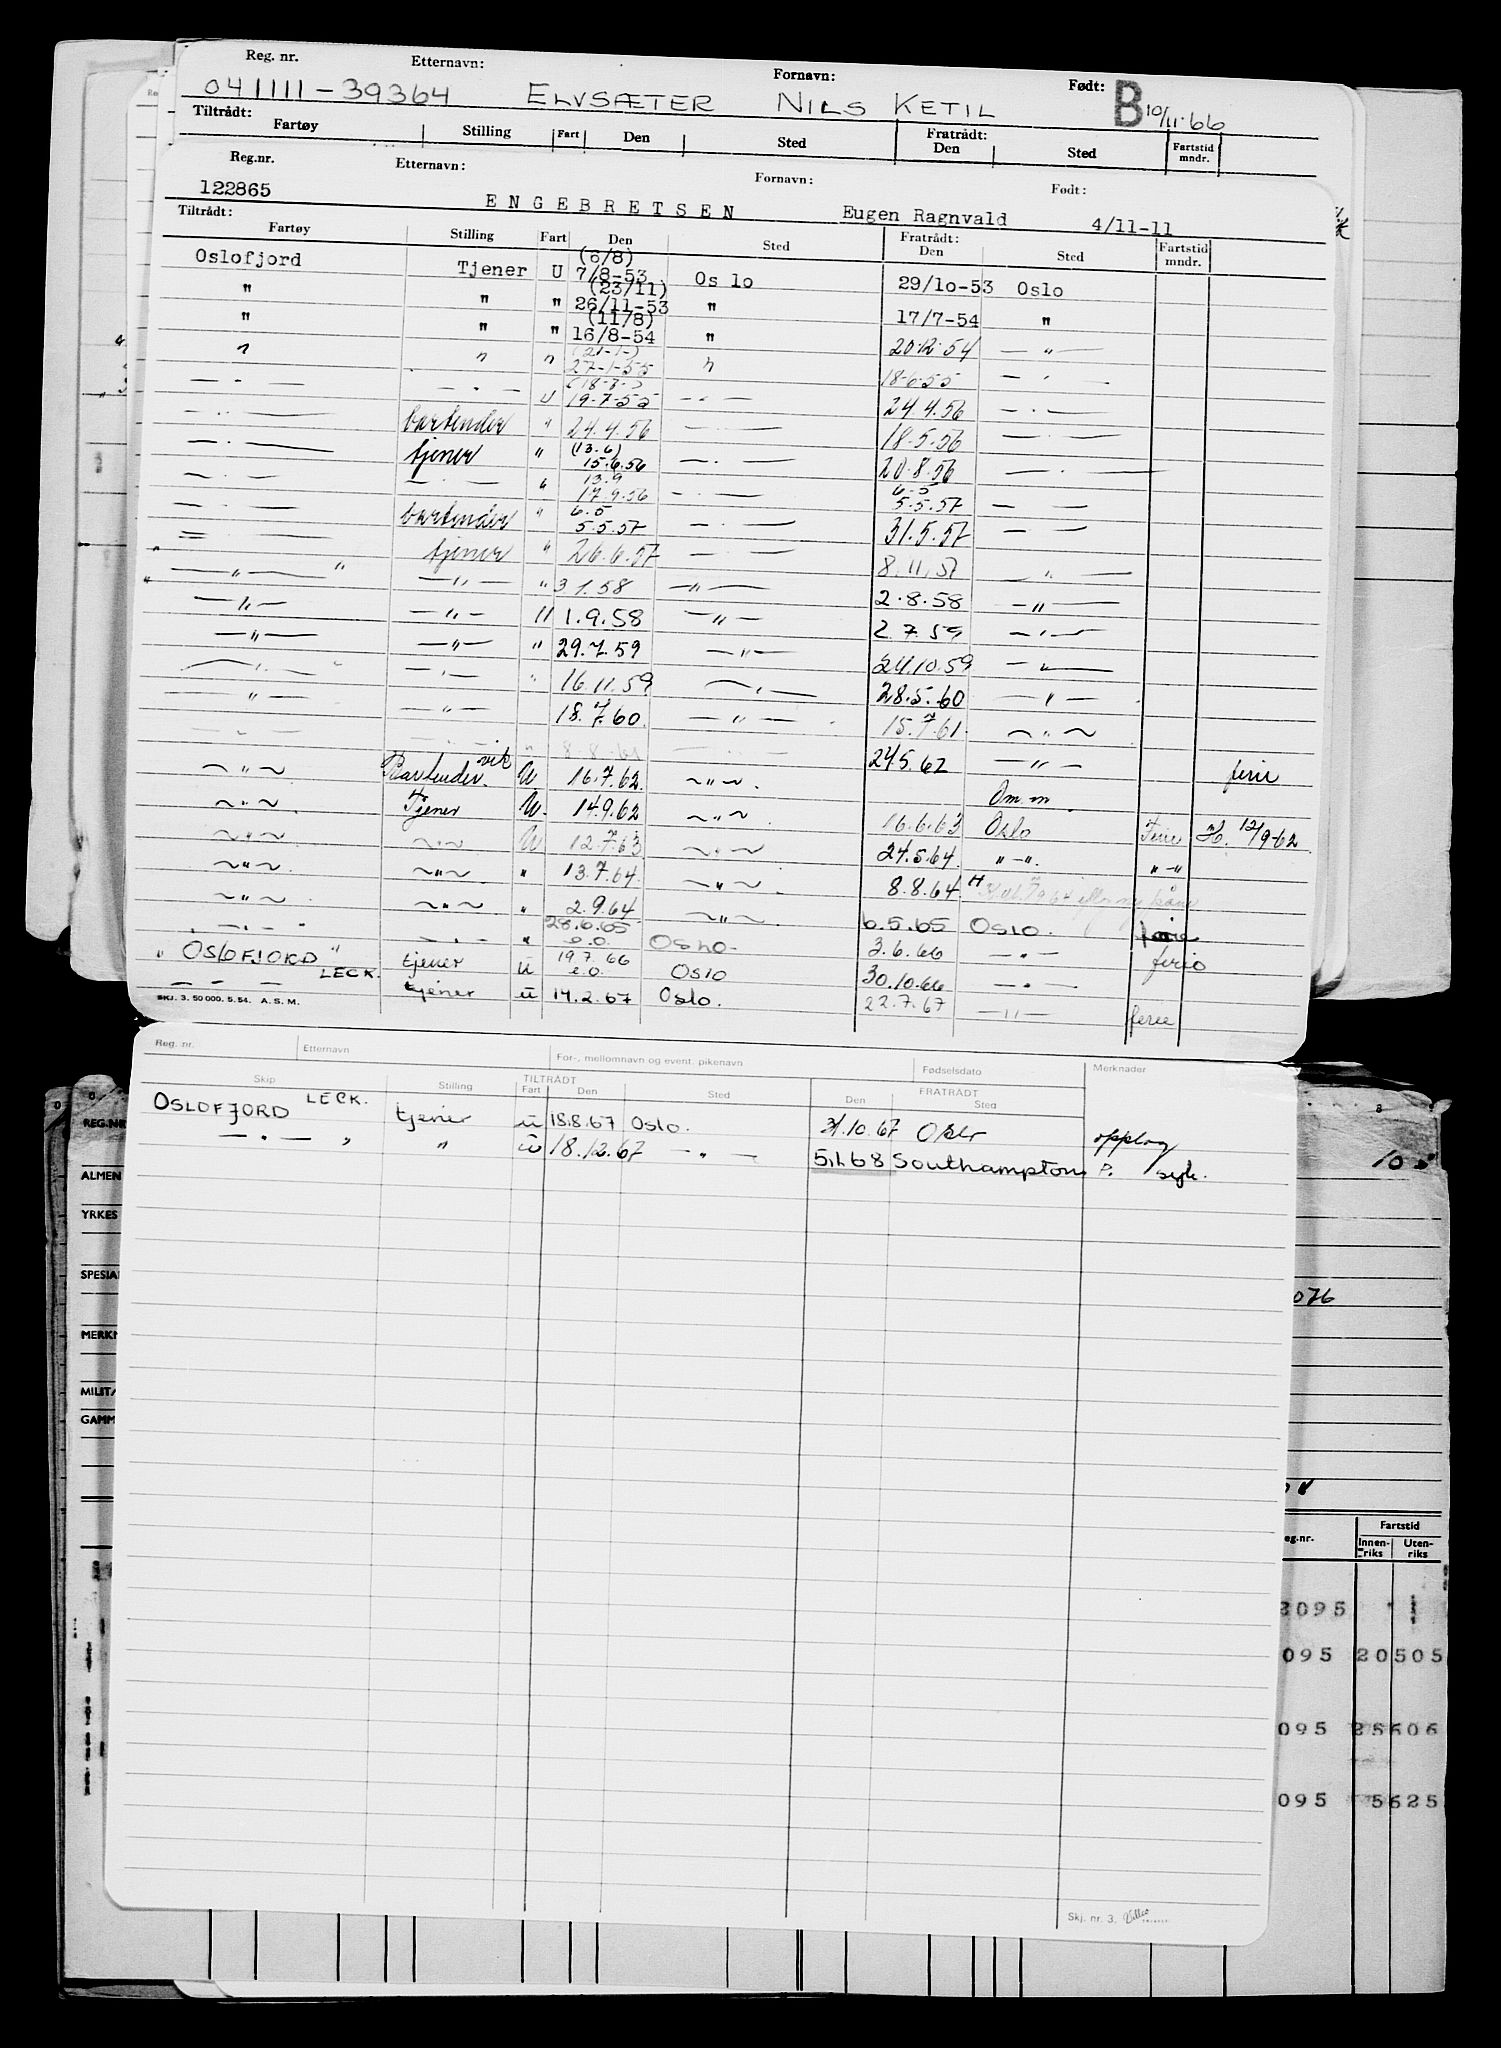 Reg. nr. Etternavn: Fornavn: Født:
041111-39364 ELVSÆTER NILS KETIL B 10/11-66
Tiltrådt: Fratrådt:
Fartøy Stilling Fart Den Sted Den Sted Fartstid mndr.
Reg.nr. Etternavn: Fornavn: Født:
122865 ENGEBRETSEN Eugen Ragnvald 4/11-11
Tiltrådt: Fratrådt:
Fartøy Stilling Fart Den Sted Den Sted Fartstid mndr.
(6/8)
Oslofjord Tjener U 7/8-53 Os lo 29/10-53 Oslo
(23/11)
" " " 26/11-53 " 17/7-54 "
(11/8)
" " " 16/8-54 " 20.12.54 — " —
(21-1-)
" " " 27-1-55 " 18-6-55 — " —
— " — — " — U 19-7-55 — " — 24.4.56 — " —
— " — bartender " 24.4.56 — " — 18.5.56 — " —
(13.6)
— " — tjener " 15.6.56 — " — 20.8.56 — " —
13.9 6-5
— " — — " — " 17.9.56 — " — 5.5.57 — " —
6.5
— " — bartender " 5.5.57 — " — 31.5.57 — " —
tjener " 26.6.57 — " — 8.11.57 — " —
" — " — " — " — " 3 1.58 — " — 2.8.58 — " —
" — " — — " — " 1.9.58 — " — 2.7.59 — " —
— " — — " — " 29.7.59 — " — 24.10.59 — " —
— " — — " — " 16.11.59 — " — 28.5.60 — " —
— " — — " — 18.7.60. — " — 15.7.61. — " —
— " — — " — " 8.8.61 — " — 24.5.62 — " — ferie
— " — Bartender vik U 16.7.62. — " — Om.m
— " — Tjener U. 14.9.62 — " — 16.6.63 Oslo Ferie H. 12/9-62
— " — — " — U 12.7.63 — " — 24.5.64. " - ". " - "
— " — — " — " 13.7.64. — " — 8.8.64.
— " — — " — " 2.9.64 — " — 6.5.65 OSLO. ferie
28.6.65
— " — — " — " e.o. OSLO. 3.6.66 — " — ferie
19.7.66
" OSLOFJORD " tjener u e.o. Oslo 30.10.66 — " —
— — — LECK. tjener u 14.2.67 Oslo. 22.7.67 — " — ferie
SKJ. 3. 50 000. 5. 54. A. S. M.
Reg. nr. Etternavn For-, mellomnavn og event. pikenavn Fødselsdato Merknader
TILTRÅDT FRATRÅDT
Skip Stilling Fart Den Sted Den Sted
OSLOFJORD LECK. tjener u 18.8.67 Oslo. 31.10.67 Oslo opplag
— " — " " u 18.12.67 — " — 5.1.68 Southampton P. syk.
REG.NR
ALMEN
YRKES
SPESIAL
MERKN
MILIT
GAMM
10
076
eg.nr. Fartstid
Innen-riks Uten-riks
2095
095 20505
095 25606
095 5625
Skj. nr. 3.